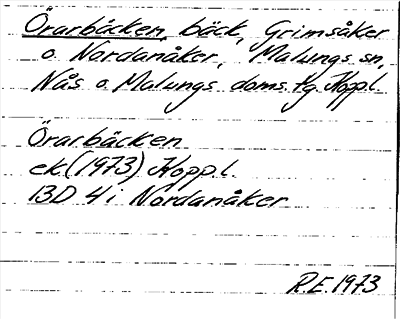 Örarbäcken, bäck, Grimsåker
o. Nordanåker, Malungs sn,
Nås o. Malungs doms. tg Koppl.
Örarbäcken
ek. (1973) Koppl.
13D 4i Nordanåker
R.E. 1973